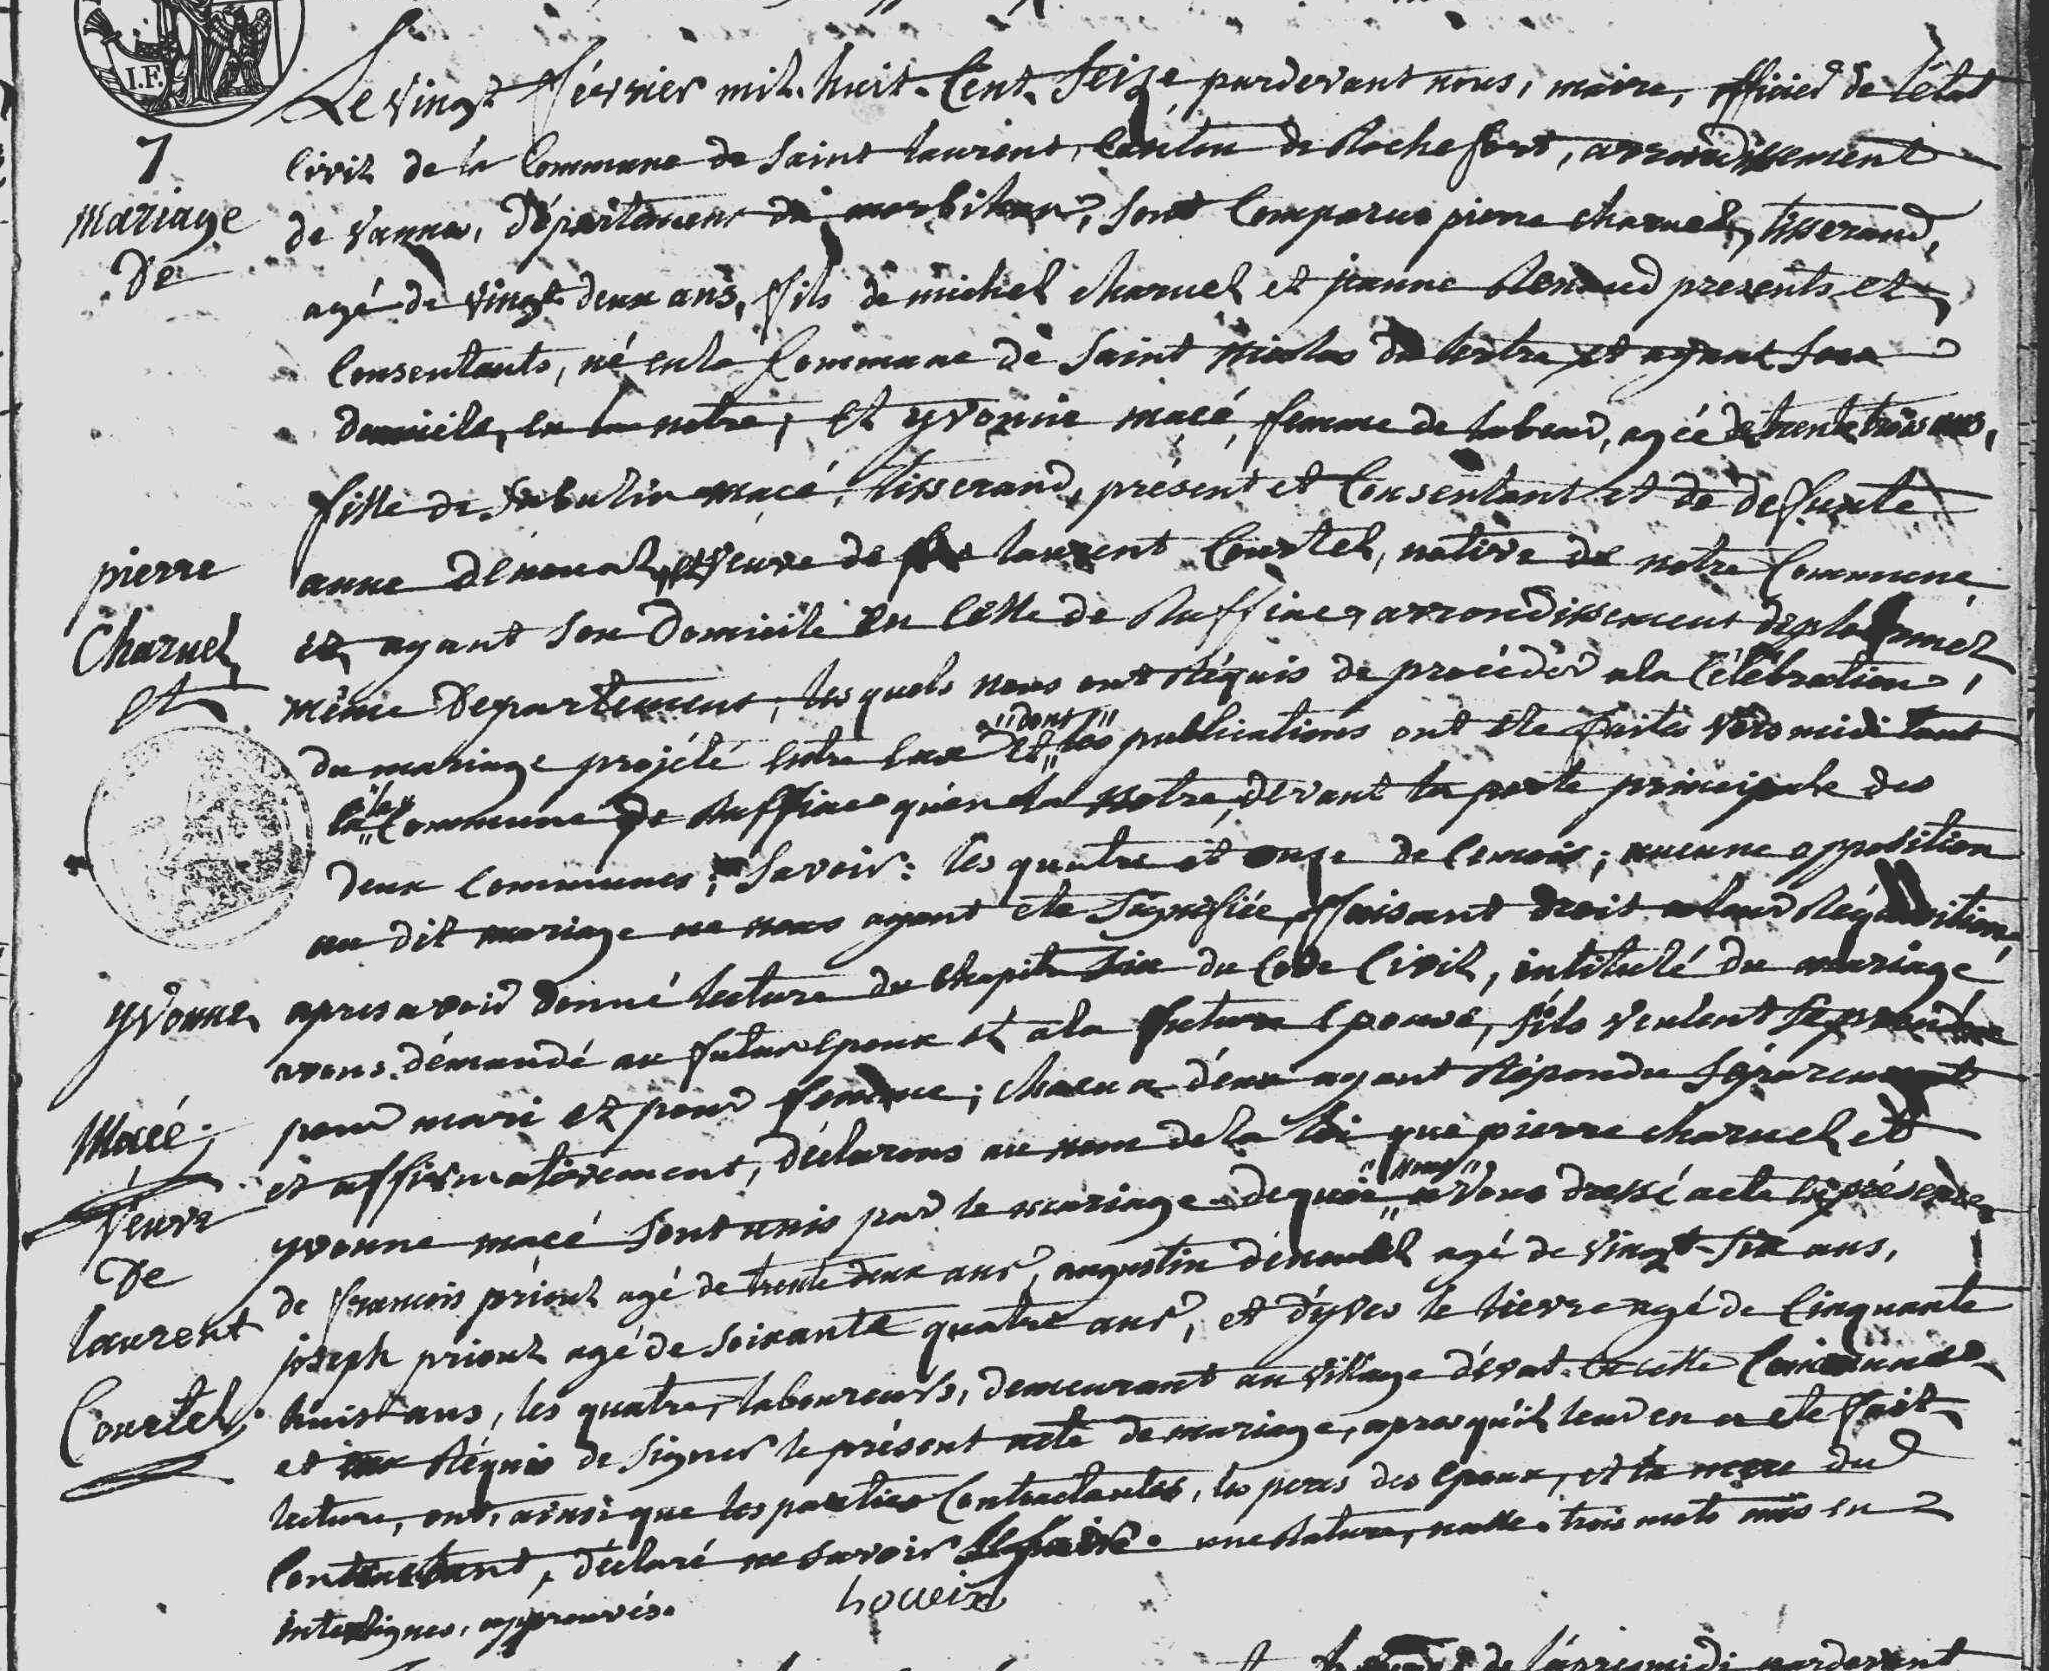 I.F.
7
Mariage
De
pierre
Charuel
et
yvonne
Macé
Veuve
De
laurent
Courtel.
Le vingt février mil huit-Cent-Seize, pardevant nous, maire, officier de l'état
Civil de la Commune de Saint laurent, Canton de Rochefort, arrondissement
de Vannes, Département du morbihan, sont Comparus pierre charuel, tisserand,
agé de vingt deux ans, fils de michel charuel et jeanne Renaud presents et
Consentants, né en la Commune de Saint nicolas du tertre et ayant son
domicile, en la notre; et yvonne macé, femme de labeur, agée de trente trois ans,
fille de macé, tisserand, présent et Consentant et de defunte
anne dénoual, et veuve de laurent Courtel, native de notre Commune
et ayant son Domicile en Celle de Ruffiac, arrondissement de ploermel
même Departement, lesquels nous ont Réquis de procéder a la Célébration
du mariage projété entre eux "dont" et les publications ont été faites vers midi tant
la Commune de Ruffiac qu'en la Notre, devant la porte principale des
deux Communes; Savoir: les quatre et onze de Cemois; aucune opposition
au dit mariage ne nous ayant été Signifiée, ffaisant droit a leur Réquisition,
apres avoir donné lecture du Chapitre Six du Code Civil, intitulé du mariage
avons démandé au futur Epoux et a la future Epouse, s'ils veulent se prendre
pour mari et pour femme; chacun d'eux ayant Répondu Séparement
et affirmativement, déclarons au nom de la loi que pierre charuel et
yvonne macé Sont unis par le mariage. dequoi "nous" avons dressé acte en présence
de francois prioul agé de trente deux ans, augustin dénoual agé de vingt-six ans,
joseph prioul agé de soixante quatre ans, et d'yves le lievre agé de Cinquante
huit ans, les quatre, laboureurs, demeurant au village d'évat. de cette Commune
et Réquis de signer le présent acte de mariage, apres qu'il leur en a été fait
lecture, ont, ainsi que les parties Contractantes, les peres des Epoux, et la mere du
Contractant, déclaré ne savoir le faire. une Rature, nulle. trois mots mis en
interlignes, approuvés.
houeix
de l'apresmidi pardevant